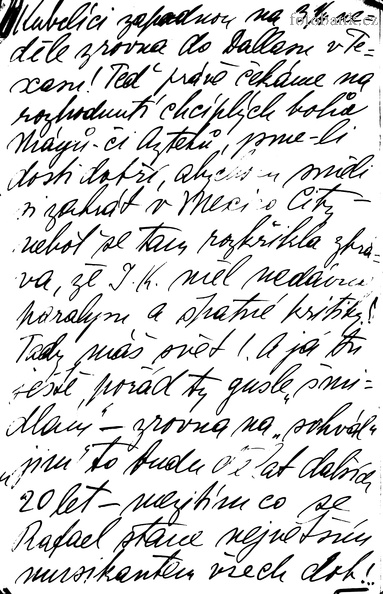 fotobanka.cz
Kubelíci zapadnou na 3
děle zrovna do Dallasu v Te-
xasu! Teď právě čekáme na
rozhodnutí chcíplých bohů
Máyů-či Aztéků, jsme-li
dosti dobří, abychom směli
si zahrát v Mexico City -
neboť se tam rozkřikla zprá-
va, že J.K. měl nedávno
paralysu a špatné kritiky!
Tady máš svět! A já tu
ještě pořád ty gusle „šmi-
dlám" - zrovna na „schvál
to budu dělat dalších
20 let - mezitím co se
Rafael stane největším
muzikantem všech dob!